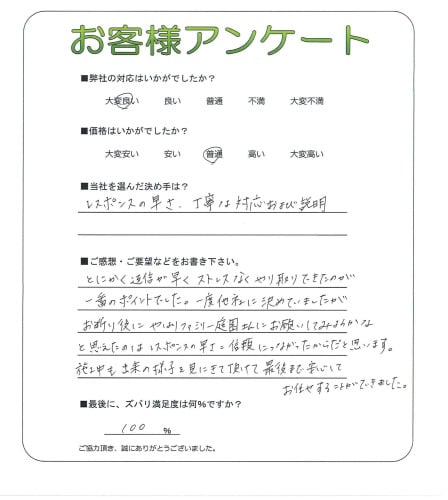 お客様アンケート
■弊社の対応はいかがでしたか？
大変良い 良い 普通 不満 大変不満
■価格はいかがでしたか？
大変安い 安い 普通 高い 大変高い
■当社を選んだ決め手は？
レスポンスの早さ、丁寧な対応および説明
■ご感想・ご要望などをお書き下さい。
とにかく返信が早くストレスなくやり取りできたのが
一番のポイントでした。一度他社に決めていましたが
お断り後にやはりファミリー庭園さんにお願いしてみようかな
と思えたのはレスポンスの早さ＝信頼につながったからだと思います。
施工中も出来の様子を見にきて頂けて最後まで安心して
お任せすることができました。
■最後に、ズバリ満足度は何％ですか？
100 %
ご協力頂き、誠にありがとうございました。